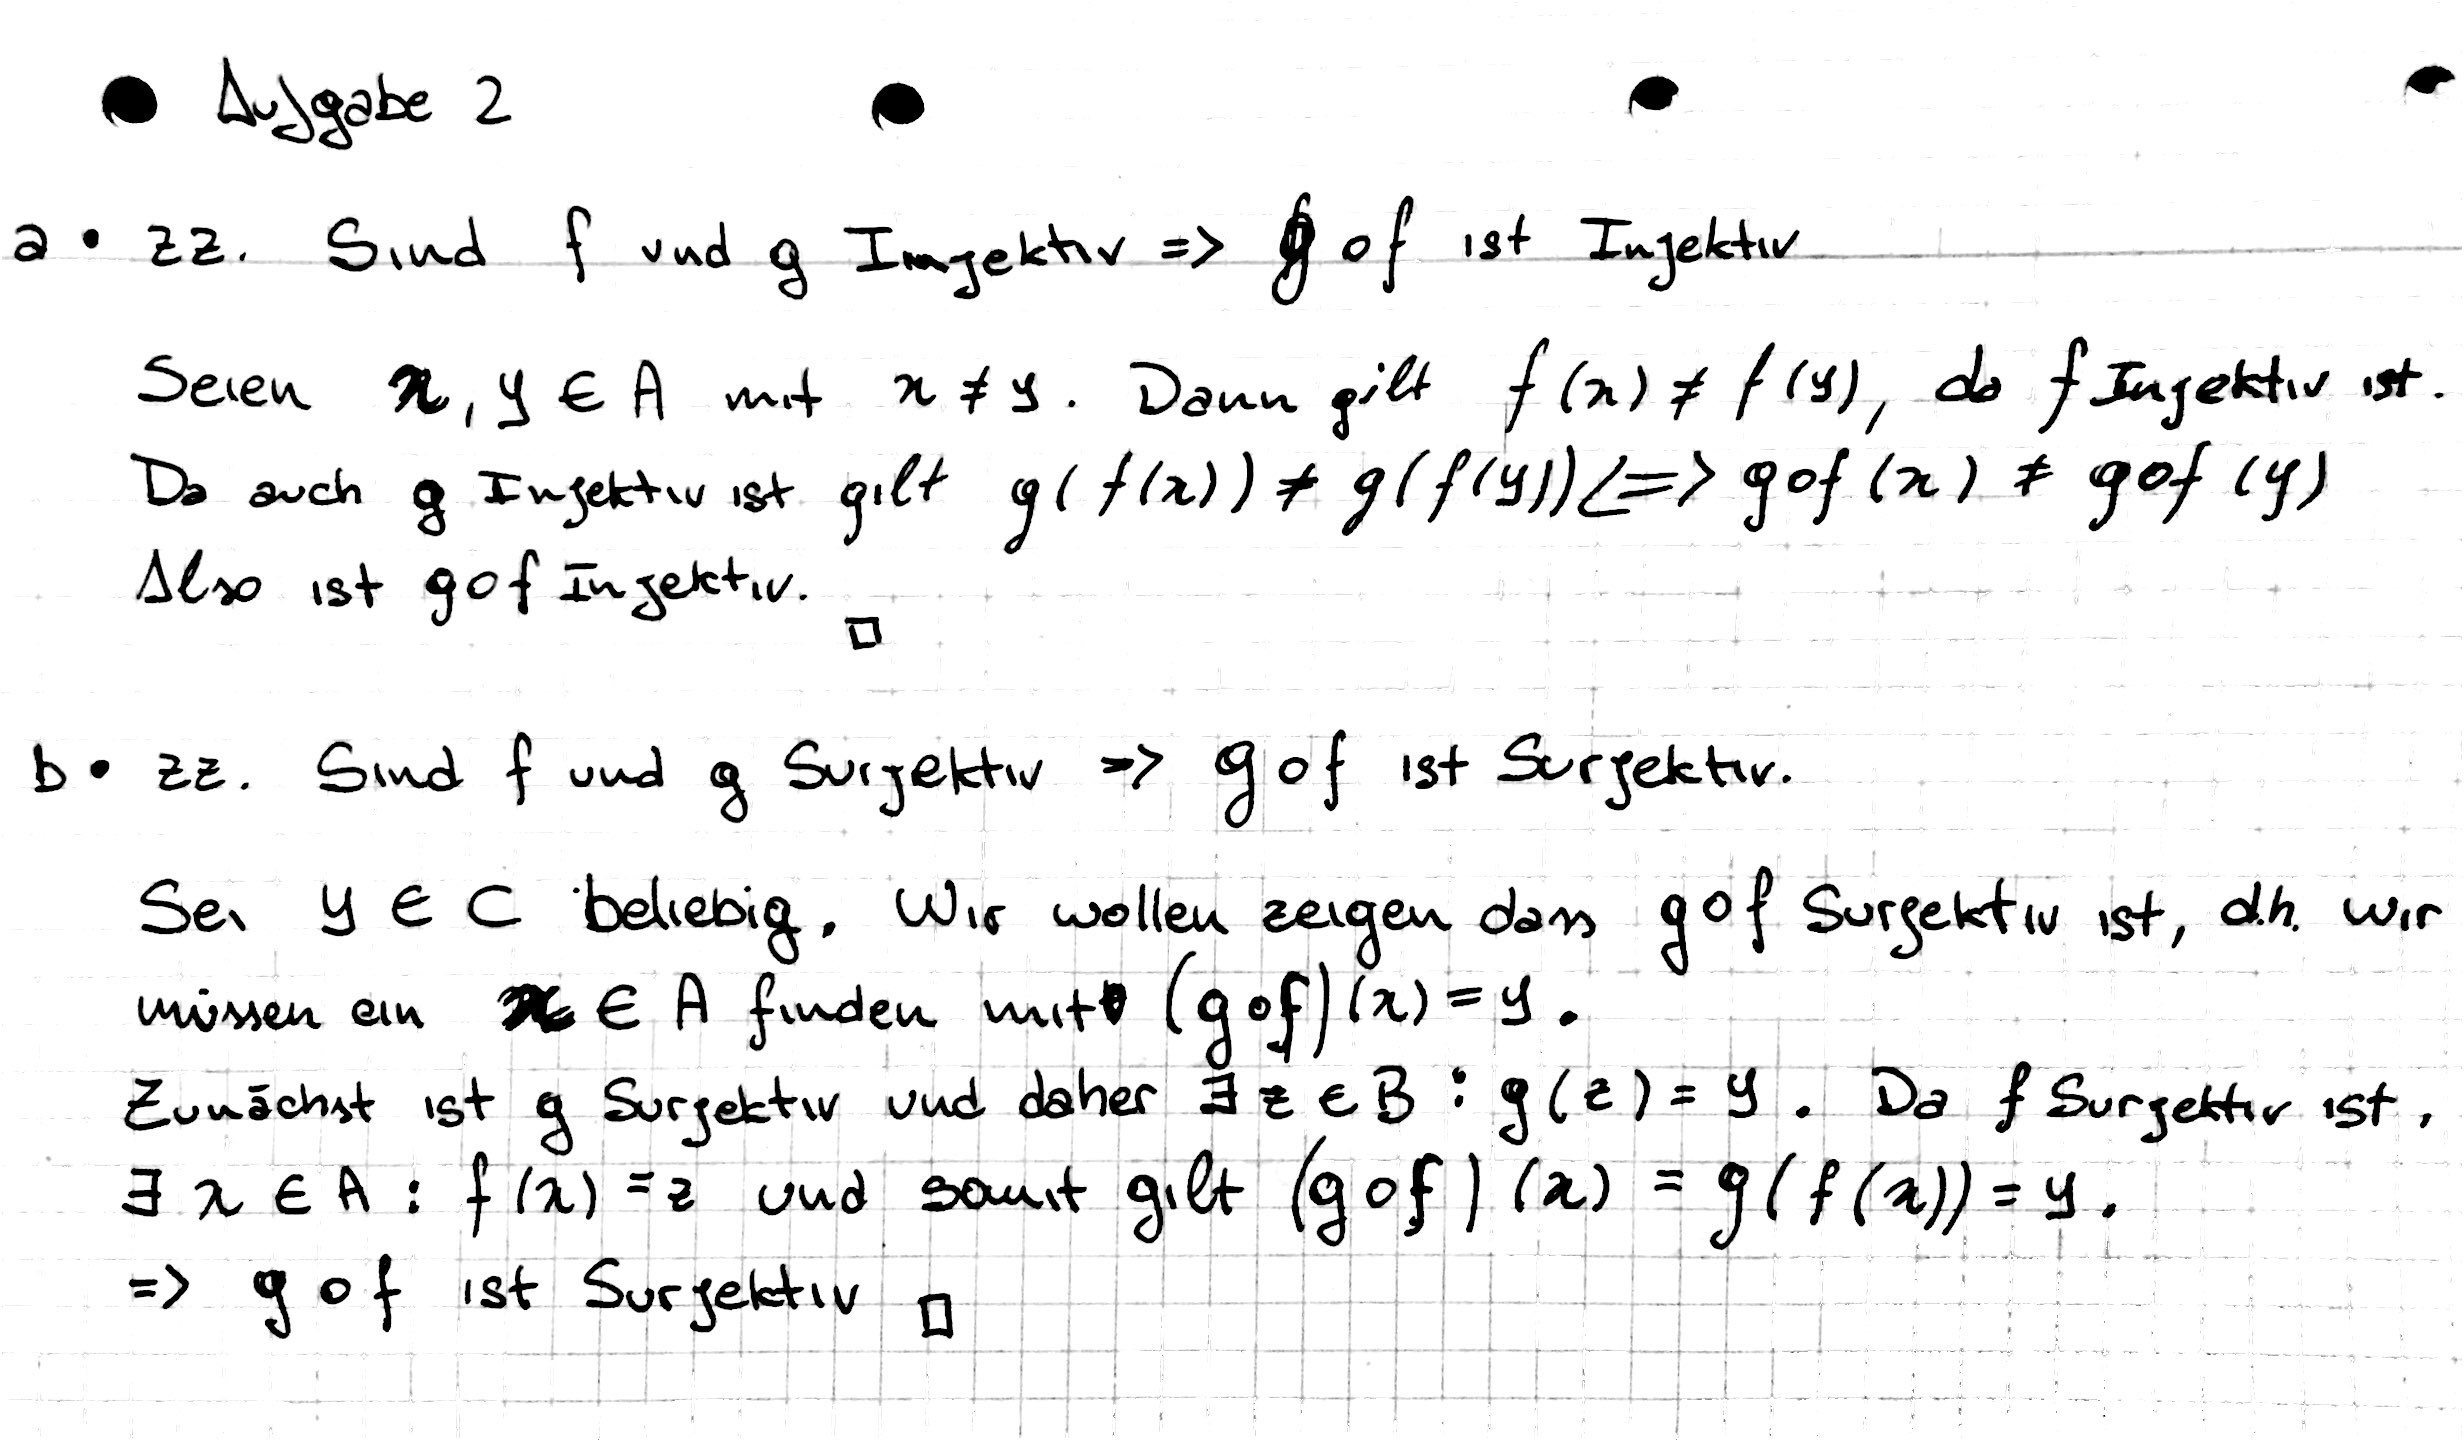 Aufgabe 2
a • zz. Sind f und g Injektiv => g o f ist Injektiv
Seien x, y ∈ A mit x ≠ y. Dann gilt f(x) ≠ f(y), da f Injektiv ist.
Da auch g Injektiv ist gilt g(f(x)) ≠ g(f(y)) <=> gof(x) ≠ gof(y)
Also ist gof Injektiv. □
b • zz. Sind f und g Surjektiv => g o f ist Surjektiv.
Sei y ∈ C beliebig. Wir wollen zeigen dass gof Surjektiv ist, d.h. wir
müssen ein x ∈ A finden mit (gof)(x) = y.
Zunächst ist g Surjektiv und daher ∃ z ∈ B : g(z) = y. Da f Surjektiv ist,
∃ x ∈ A : f(x) = z und somit gilt (gof)(x) = g(f(x)) = y.
=> g o f ist Surjektiv □